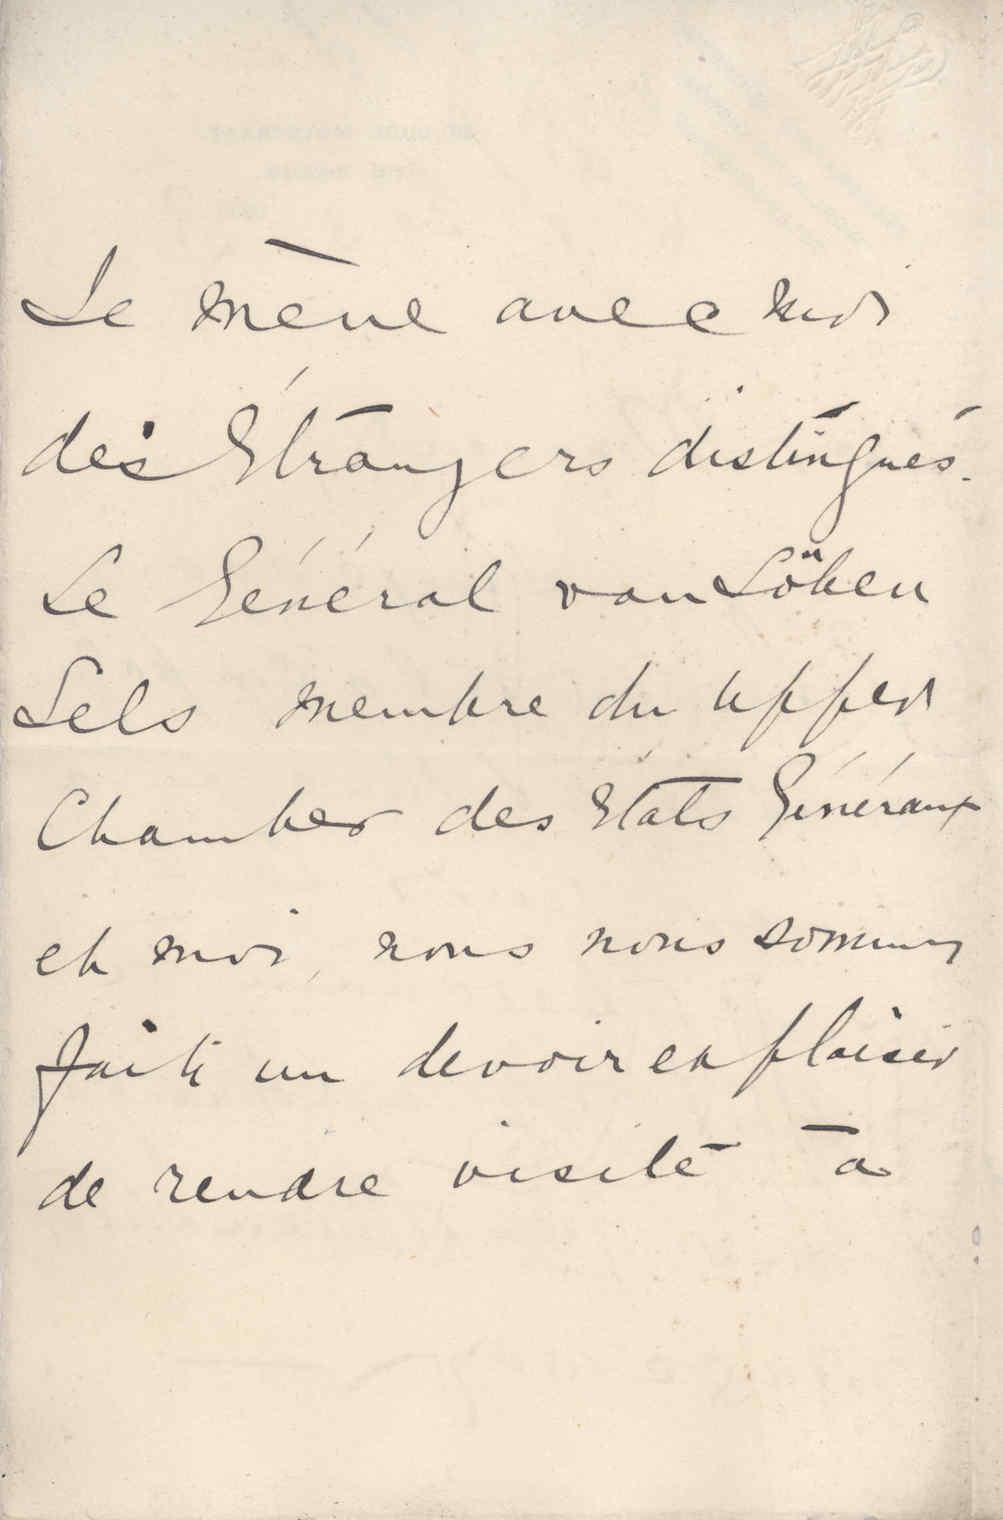 Je mène avec moi
des Étrangers distingués.
Le Général van Löben
Sels membre du upper
Chamber des États Généraux
et moi, nous nous sommes
faits un devoir et plaisir
de rendre visite à